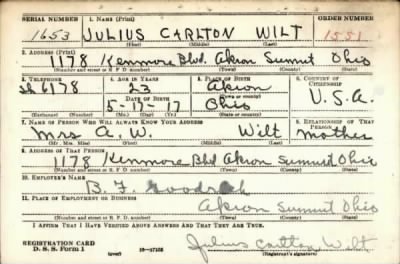 SERIAL NUMBER 1. NAME (Print) ORDER NUMBER
1653 JULIUS CARLTON WILT 1551
(First) (Middle) (Last)
2. ADDRESS (Print)
1178 Kenmore Blvd. Akron Summit Ohio
(Number and street or R. F. D. number) (Town) (County) (State)
3. TELEPHONE 4. AGE IN YEARS 5. PLACE OF BIRTH 6. COUNTRY OF CITIZENSHIP
6178 23 Akron
DATE OF BIRTH
5-17-17 Ohio U.S.A.
(Exchange) (Number) (Mo.) (Day) (Yr.) (State or country)
7. NAME OF PERSON WHO WILL ALWAYS KNOW YOUR ADDRESS 8. RELATIONSHIP OF THAT PERSON
Mrs A. W. Wilt mother
(Mr., Mrs., Miss) (First) (Middle) (Last)
9. ADDRESS OF THAT PERSON
1178 Kenmore Blvd Akron Summit Ohio
(Number and street or R. F. D. number) (Town) (County) (State)
10. EMPLOYER'S NAME
B. F. Goodrich
11. PLACE OF EMPLOYMENT OR BUSINESS
Akron Summit Ohio
(Number and street or R. F. D. number) (Town) (County) (State)
I AFFIRM THAT I HAVE VERIFIED ABOVE ANSWERS AND THAT THEY ARE TRUE.
REGISTRATION CARD
D. S. S. Form 1 (over) Julius Carlton Wilt